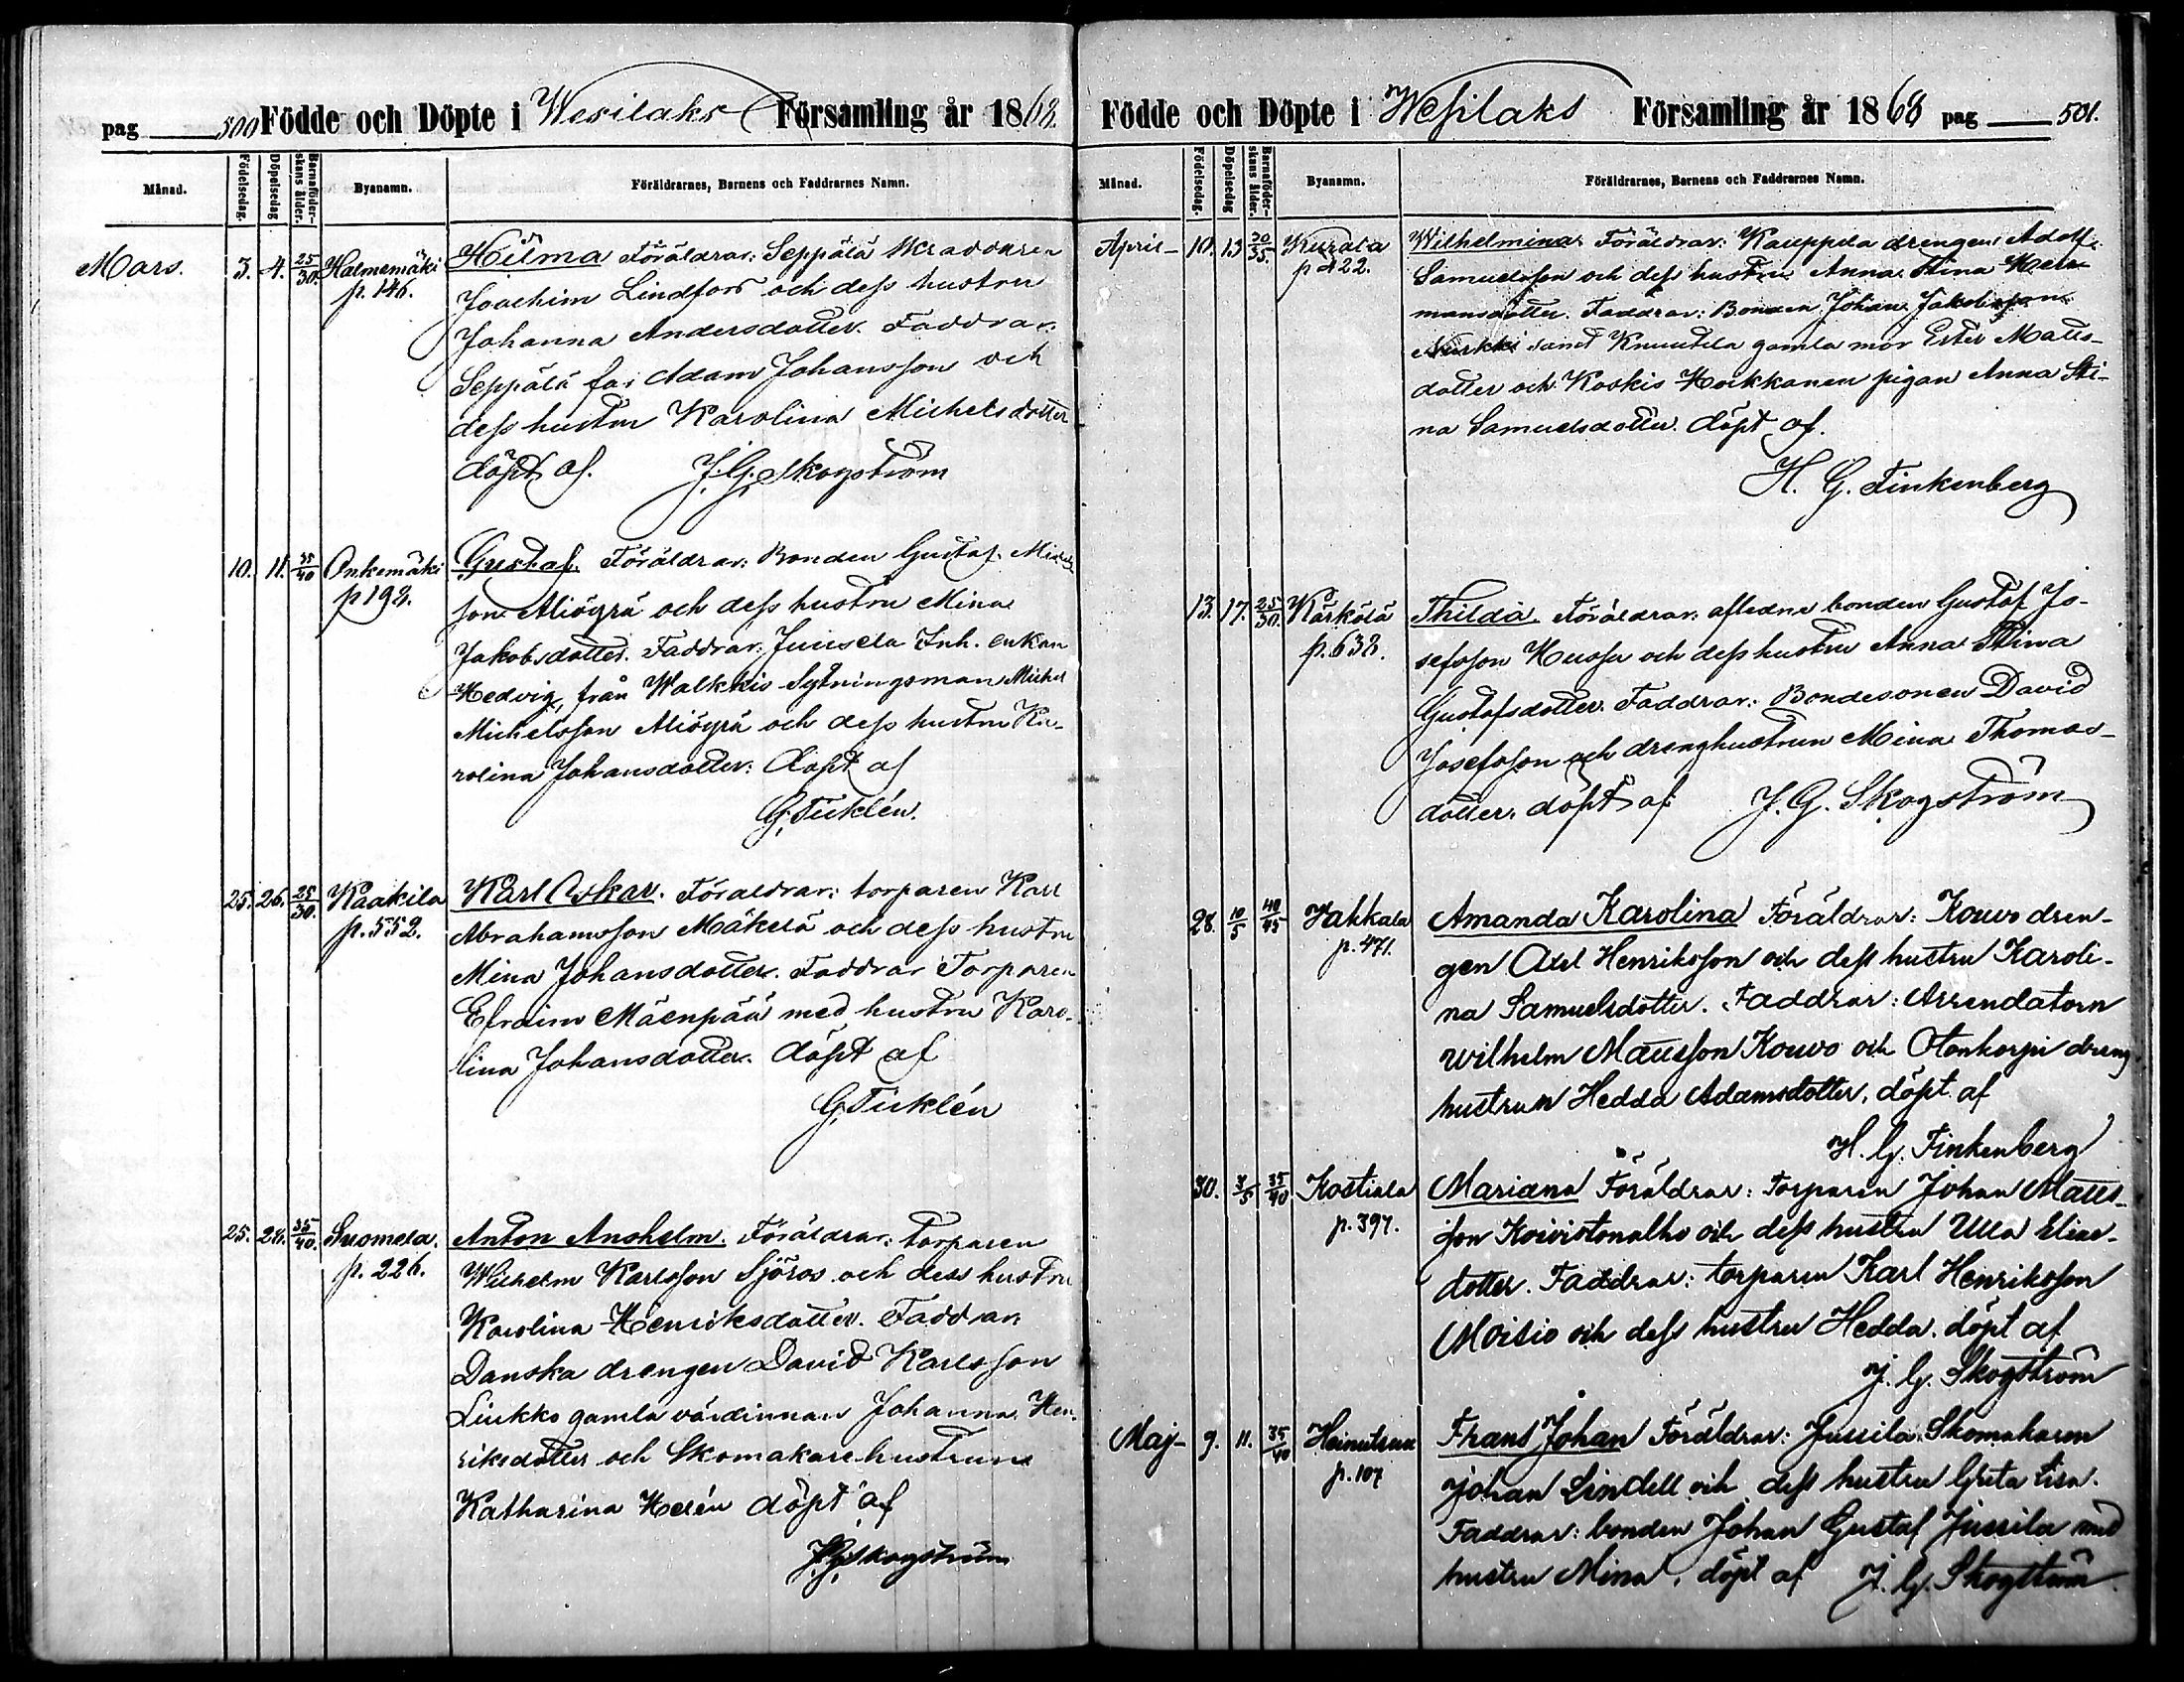 pag 500 Födde och Döpte i Wesilaks Församling år 1868.
Månad. Födelsedag. Döpelsedag Barnaföderskans ålder. Byanamn. Föräldrarnes, Barnens och Faddrarnes Namn.
Mars. 3. 4. 25/30. Halmemäki Hilma Föräldrar: Seppälä Skräddaren
p. 146. Joachim Lindfors och dess hustru
Johanna Andersdotter. Faddrar:
Seppälä far Adam Johansson och
dess hustru Karolina Michelsdotter
döpt af. J. G. Skogström
10. 11. 35/40 Onkemäki Gustaf. Föräldrar: Bonden Gustaf Michels
p 198. son Aliögrä och dess hustru Mina
Jakobsdotter. Faddrar: Junsela Inh. enkan
Hedvig, från Walkkis Sytningsman Michel
Michelsson Aliögrä och dess hustru Ka-
rolina Johansdotter: döpt af
G. Ticklén.
25. 26. 25/30. Kaakila Karl Oskar. Föräldrar: torparen Karl
p. 552. Abrahamsson Mäkelä och dess hustru
Mina Johansdotter. Faddrar Torparen
Efraim Mäenpää med hustru Karo-
lina Johansdotter. döpt af
G. Ticklén
25. 28. 35/40. Suomela. Anton Anshelm. Föräldrar: Torparen
p. 226. Wilhelm Karlsson Sjöros och dess hustru
Karolina Henriksdotter. Faddrar:
Danska drengen David Karlsson
Liukko gamla värdinnan Johanna Hen-
riksdotter och Skomakarehustrun
Katharina Helén döpt af
J. G. Skogström
Födde och Döpte i Wesilaks Församling år 1868 pag 501.
Månad. Födelsedag. Döpelsedag Barnaföderskans ålder. Byanamn. Föräldrarnes, Barnens och Faddrarnes Namn.
April 10. 13 30/35. Kurala Wilhelmina Föräldrar: Kauppila drengen Adolf
p 422. Samuelsson och dess hustru Anna Stina Her-
mansdotter. Faddrar: Bonden Johan Jakobsson
Nurkki samt Knuutila gamla mor Ester Matts-
dotter och Koskis Hoikkanen pigan Anna Sti-
na Samuelsdotter. döpt af.
H. G. Finkenberg
13. 17. 25/30. Kärkölä Thilda. Föräldrar: afledne bonden Gustaf Jo-
p. 638. sefsson Hussa och dess hustru Anna Stina
Gustafsdotter. Faddrar: Bondesonen David
Josefsson och drenghustrun Mina Thomas-
dotter. döpt af J. G. Skogström
28. 10/5 40/45 Hakkala Amanda Karolina Föräldrar: Kouvo dren-
p. 471. gen Axel Henriksson och dess hustru Karoli-
na Samuelsdotter. Faddrar: Arrendatorn
Wilhelm Mattsson Kouvo och Otonkorpi dreng
hustrun Hedda Adamsdotter, döpt af
H. G. Finkenberg
30. 3/5 35/40 Kostiala Mariana Föräldrar: Torparen Johan Matts-
p. 397. son Koivistonalho och dess hustru Ulla Elias-
dotter. Faddrar: torparen Karl Henriksson
Moisio och dess hustru Hedda. döpt af
J. G. Skogström
Maj 9. 11. 35/40 Heinutsuu Frans Johan Föräldrar: Jussila Skomakaren
p. 107 Johan Lindell och dess hustru Greta Lisa.
Faddrar: bonden Johan Gustaf Jussila med
hustru Mina, döpt af J. G. Skogström